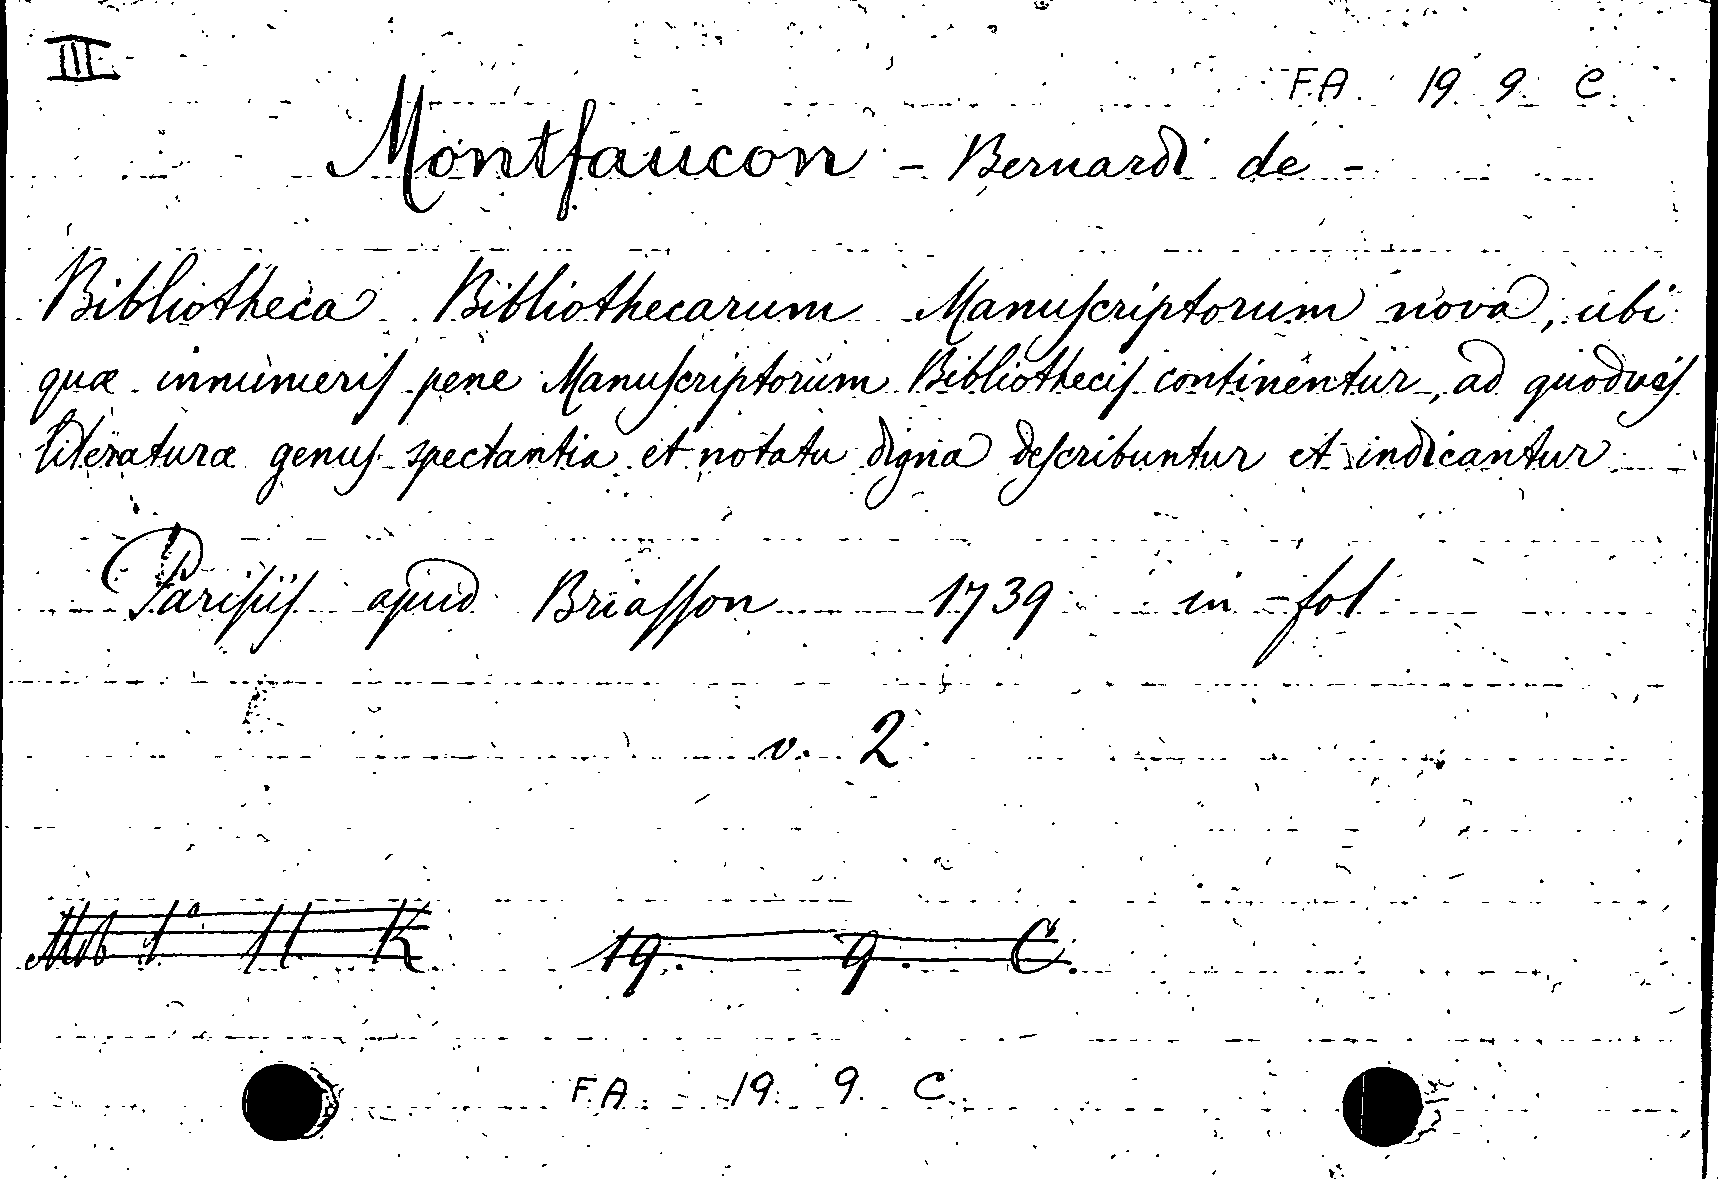 III
F.A. 19. 9. C.
Montfaucon - Bernardi de -
Bibliotheca Bibliothecarum Manuscriptorum nova, ubi
quæ innumeris pene Manuscriptorum Bibliothecis continentur, ad quodvis
literaturæ genus spectantia et notatu digna describuntur et indicantur
Parisiis apud Briasson 1739 in-fol
v. 2
Mob 1° 11 K 19. 9. C.
F.A. 19. 9. C.